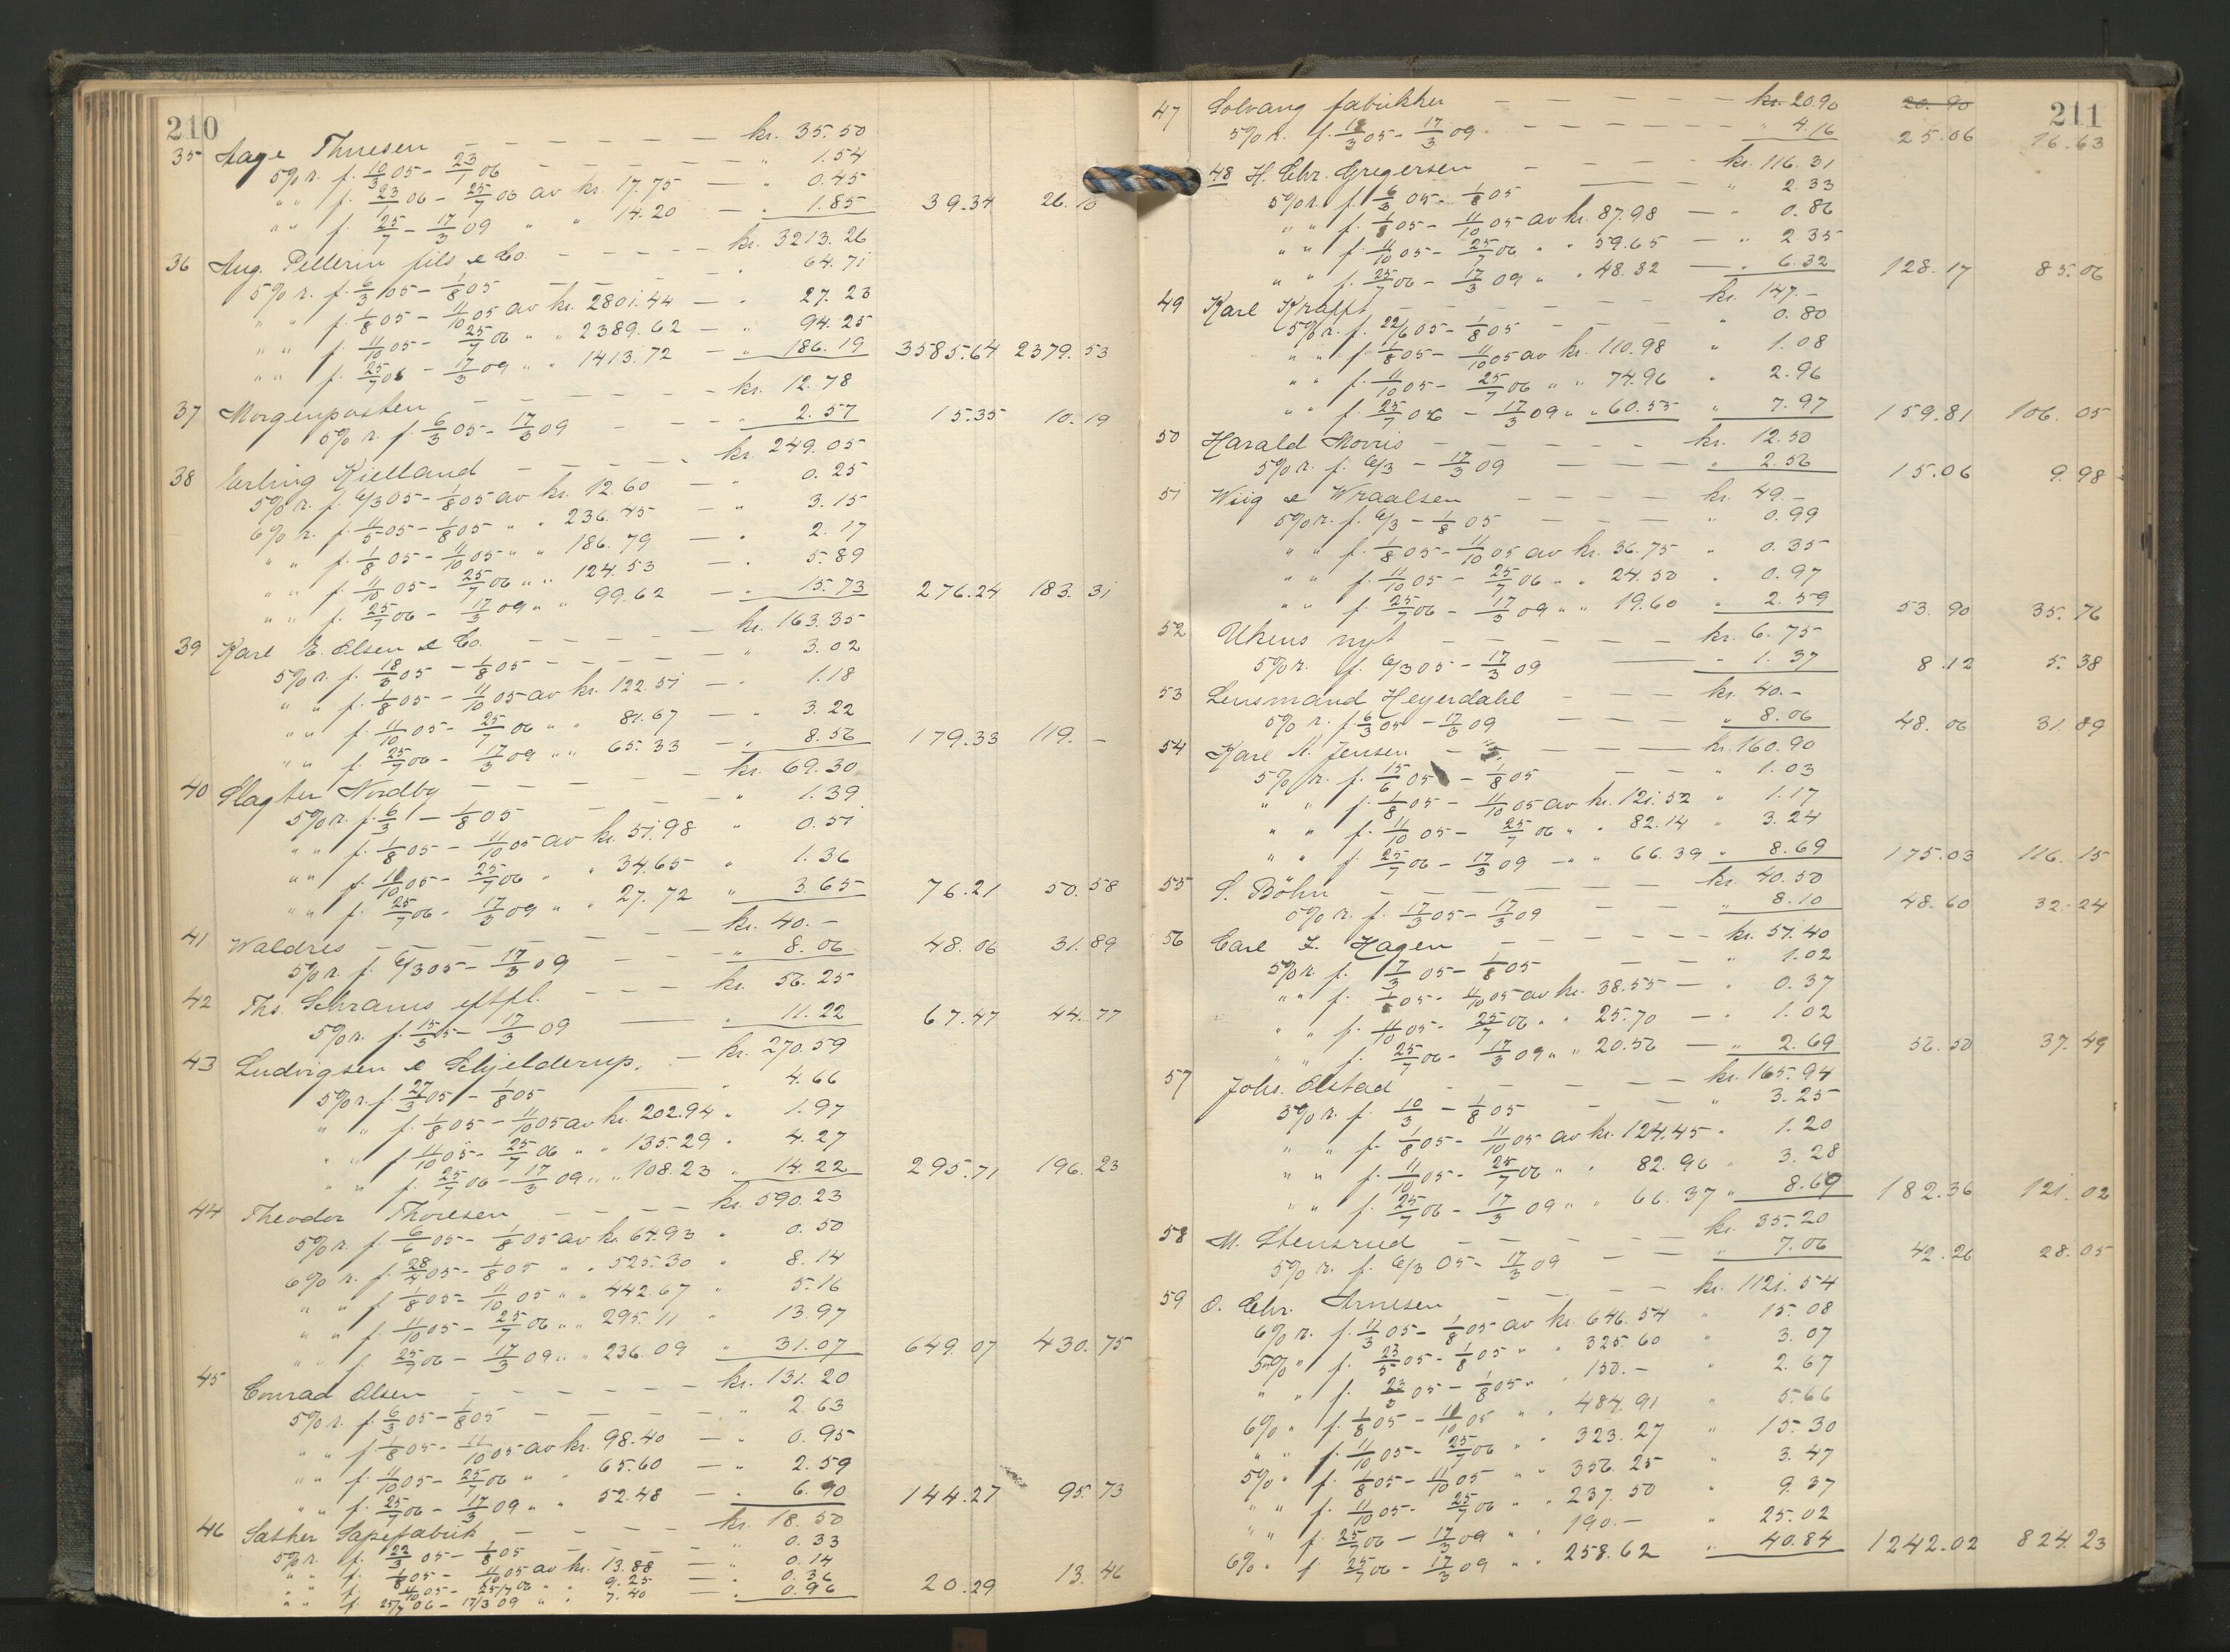 210
35 Aage Thuesen — — — — — — kr. 35.50
5% r. f. 10/3 05 - 23/1 06 — — — — — " 1.54
" " f. 23/1 06 - 25/7 06 av kr. 17.75 — " 0.45
" " f. 25/7 - 17/3 09 " " 14.20 — " 1.85 39.34 26.10
36 Aug. Pellerin fils & Co. — — — — kr. 3213.26
5% r. f. 6/3 05 - 1/8 05 — — — " 64.71
" " f. 1/8 05 - 11/10 05 av kr. 2801.44 — " 27.23
" " f. 11/10 05 - 25/7 06 " " 2389.62 — " 94.25
" " f. 25/7 06 - 17/3 09 " " 1413.72 — " 186.19 3585.64 2379.53
37 Morgenposten — — — — — — kr. 12.78
5% r. f. 6/3 05 - 17/3 09 — — — " 2.57 15.35 10.19
38 Erling Kielland — — — — — kr. 249.05
5% r. f. 6/3 05 - 1/8 05 av kr. 12.60 — " 0.25
6% r. f. 11/5 05 - 1/8 05 " " 236.45 — " 3.15
" " f. 1/8 05 - 11/10 05 " " 186.79 — " 2.17
" " f. 11/10 05 - 25/7 06 " " 124.53 — " 5.89
" " f. 25/7 06 - 17/3 09 " " 99.62 — " 15.73 276.24 183.31
39 Karl E. Olsen & Co. — — — — — kr. 163.35
5% r. f. 18/3 05 - 1/8 05 — — — — " 3.02
" " f. 1/8 05 - 11/10 05 av kr. 122.51 — " 1.18
" " f. 11/10 05 - 25/7 06 " " 81.67 — " 3.22
" " f. 25/7 06 - 17/3 09 " " 65.33 — " 8.56 179.33 119.-
40 Slagter Nordby — — — — — kr. 69.30
5% r. f. 6/3 - 1/8 05 — — — — " 1.39
" " f. 1/8 05 - 11/10 05 av kr. 51.98 " 0.51
" " f. 11/10 05 - 25/7 06 " " 34.65 " 1.36
" " f. 25/7 06 - 17/3 09 " " 27.72 " 3.65 76.21 50.58
41 Waldres — — — — — — kr. 40.-
5% r. f. 6/3 05 - 17/3 09 — — — " 8.06 48.06 31.89
42 Ths. Schrams eftfl. — — — kr. 56.25
5% r. f. 15/3 5 - 17/3 09 — " 11.22 67.47 44.77
43 Ludvigsen & Schjelderup. — kr. 270.59
5% r. f. 27/3 05 - 1/8 05 — " 4.66
" " f. 1/8 05 - 11/10 05 av kr. 202.94 " 1.97
" " f. 11/10 05 - 25/7 06 " " 135.29 " 4.27
" " f. 25/7 06 - 17/3 09 " " 108.23 " 14.22 295.71 196.23
44 Theodor Thoresen — — — — kr. 590.23
5% r. f. 6/6 05 - 1/8 05 av kr. 64.93 " 0.50
6% r. f. 28/4 05 - 1/8 05 " " 525.30 " 8.14
" " f. 1/8 05 - 11/10 05 " " 442.67 " 5.16
" " f. 11/10 05 - 25/7 06 " " 295.11 " 13.97
" " f. 25/7 06 - 17/3 09 " " 236.09 " 31.07 649.07 430.75
45 Conrad Olsen — — — — — — kr. 131.20
5% r. f. 6/3 05 - 1/8 05 — — — — " 2.63
" " f. 1/8 05 - 11/10 05 av kr. 98.40 — " 0.95
" " f. 11/10 05 - 25/7 06 " " 65.60 — " 2.59
" " f. 25/7 06 - 17/3 09 " " 52.48 — " 6.90 144.27 95.73
46 Sæther Sæpefabrik — — — — kr. 18.50
5% r. f. 22/3 05 - 1/8 05 — — — — " 0.33
" " f. 1/8 05 - 11/10 05 av kr. 13.88 — " 0.14
" " f. 11/10 05 - 25/7 06 " " 9.25 — " 0.36
" " f. 25/7 06 - 17/3 09 " " 7.40 — " 0.96 20.29 13.46
211
47 Solvang fabrikker — — — — — — kr. 20.90 20.90
5% r. f. 12/3 05 - 17/3 09 — — — — — " 4.16 25.06 16.63
48 H. Chr. Gregersen — — — — kr. 116.31
5% r. f. 6/3 05 - 1/8 05 — — — " 2.33
" " f. 1/8 05 - 11/10 05 av kr. 87.98 — " 0.86
" " f. 11/10 05 - 25/7 06 " " 59.65 — " 2.35
" " f. 25/7 06 - 17/3 09 " " 48.32 — " 6.32 128.17 85.06
49 Karl Krafft — — — — — — kr. 147.-
5% r. f. 22/6 05 - 1/8 05 — — — — " 0.80
" " f. 1/8 05 - 11/10 05 av kr. 110.98 " 1.08
" " f. 11/10 05 - 25/7 06 " " 74.96 " 2.96
" " f. 25/7 06 - 17/3 09 " " 60.55 " 7.97 159.81 106.05
50 Harald Morris — — — — — kr. 12.50
5% r. f. 6/3 - 17/3 09 — — — — " 2.56 15.06 9.98
51 Wiig & Wraalsen — — — — kr. 49.-
5% r. f. 6/3 - 1/8 05 — — — " 0.99
" " f. 1/8 05 - 11/10 05 av kr. 36.75 " 0.35
" " f. 11/10 05 - 25/7 06 " " 24.50 " 0.97
" " f. 25/7 06 - 17/3 09 " " 19.60 " 2.59 53.90 35.76
52 Ukens nyt — — — — — — kr. 6.75
5% r. f. 6/3 05 - 17/3 09 — " 1.37 8.12 5.38
53 Lensmand Heyerdahl — — — kr. 40.-
5% r. f. 6/3 05 - 17/3 09 — — — — " 8.06 48.06 31.89
54 Karl A. Jensen — — — — — kr. 160.90
5% r. f. 15/6 05 - 1/8 05 — — " 1.03
" " f. 1/8 05 - 11/10 05 av kr. 121.52 " 1.17
" " f. 11/10 05 - 25/7 06 " " 82.14 " 3.24
" " f. 25/7 06 - 17/3 09 - " " 66.39 " 8.69 175.03 116.15
55 S. Böhn — — — — — — kr. 40.50
5% r. f. 17/3 05 - 17/3 09 — — " 8.10 48.60 32.24
56 Carl F. Hagen — — — — — kr. 51.40
5% r. f. 7/3 05 - 1/8 05 — — " 1.02
" " f. 1/8 05 - 11/10 05 av kr. 38.55 — " 0.37
" " f. 11/10 05 - 25/7 06 " " 25.70 — " 1.02
" " f. 25/7 06 - 17/3 09 " " 20.56 — " 2.69 56.50 37.49
57 Johs. Ølstad — — — — — kr. 165.94
5% r. f. 10/3 - 1/8 05 — — " 3.25
" " f. 1/8 05 - 11/10 05 av kr. 124.45 " 1.20
" " f. 11/10 05 - 25/7 06 " " 82.96 " 3.28
" " f. 25/7 06 - 17/3 09 " " 66.37 " 8.69 182.36 121.02
58 M. Stensrud — — — — — kr. 35.20
5% r. f. 6/3 05 - 17/3 09 — — " 7.06 42.26 28.05
59 O. Chr. Arnesen — — — — kr. 1121.54
6% r. f. 11/3 05 - 1/8 05 av kr. 646.54 " 15.08
5% " f. 23/5 05 - 1/8 05 " " 325.60 " 3.07
" " f. 23/3 05 - 1/8 05 " " 150.- " 2.67
6% " f. 1/8 05 - 11/10 05 " " 484.91 " 5.66
" " f. 11/10 05 - 25/7 06 " " 323.27 " 15.30
5% " f. 1/8 05 - 11/10 05 " " 356.25 " 3.47
" " f. 11/10 05 - 25/7 06 " " 237.50 " 9.37
" " f. 25/7 06 - 17/3 09 " " 190.- " 25.02
6% " f. 25/7 06 - 17/3 09 " " 258.62 " 40.84 1242.02 824.23